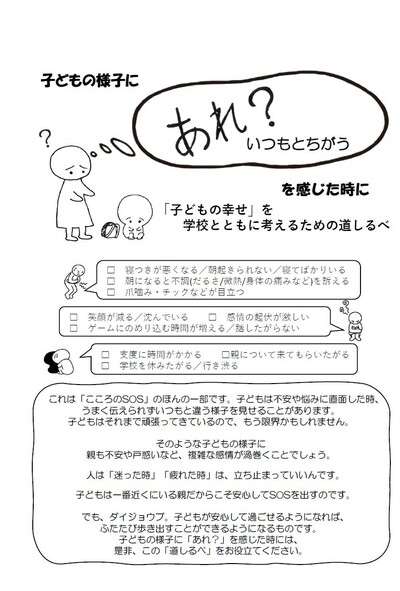 子どもの様子に
あれ？
いつもとちがう
？
を感じた時に
「子どもの幸せ」を
学校とともに考えるための道しるべ
□ 寝つきが悪くなる／朝起きられない／寝てばかりいる
□ 朝になると不調(だるさ/微熱/身体の痛みなど)を訴える
□ 爪噛み・チックなどが目立つ
□ 笑顔が減る／沈んでいる □ 感情の起伏が激しい
□ ゲームにのめり込む時間が増える／話したがらない
□ 支度に時間がかかる □親について来てもらいたがる
□ 学校を休みたがる／行き渋る
これは「こころのSOS」のほんの一部です。子どもは不安や悩みに直面した時、
うまく伝えられずいつもと違う様子を見せることがあります。
子どもはそれまで頑張ってきているので、もう限界かもしれません。
そのような子どもの様子に
親も不安や戸惑いなど、複雑な感情が渦巻くことでしょう。
人は「迷った時」「疲れた時」は、立ち止まっていいんです。
子どもは一番近くにいる親だからこそ安心してSOSを出すのです。
でも、ダイジョウブ。子どもが安心して過ごせるようになれば、
ふたたび歩き出すことができるようになるものです。
子どもの様子に「あれ？」を感じた時には、
是非、この「道しるべ」をお役立てください。